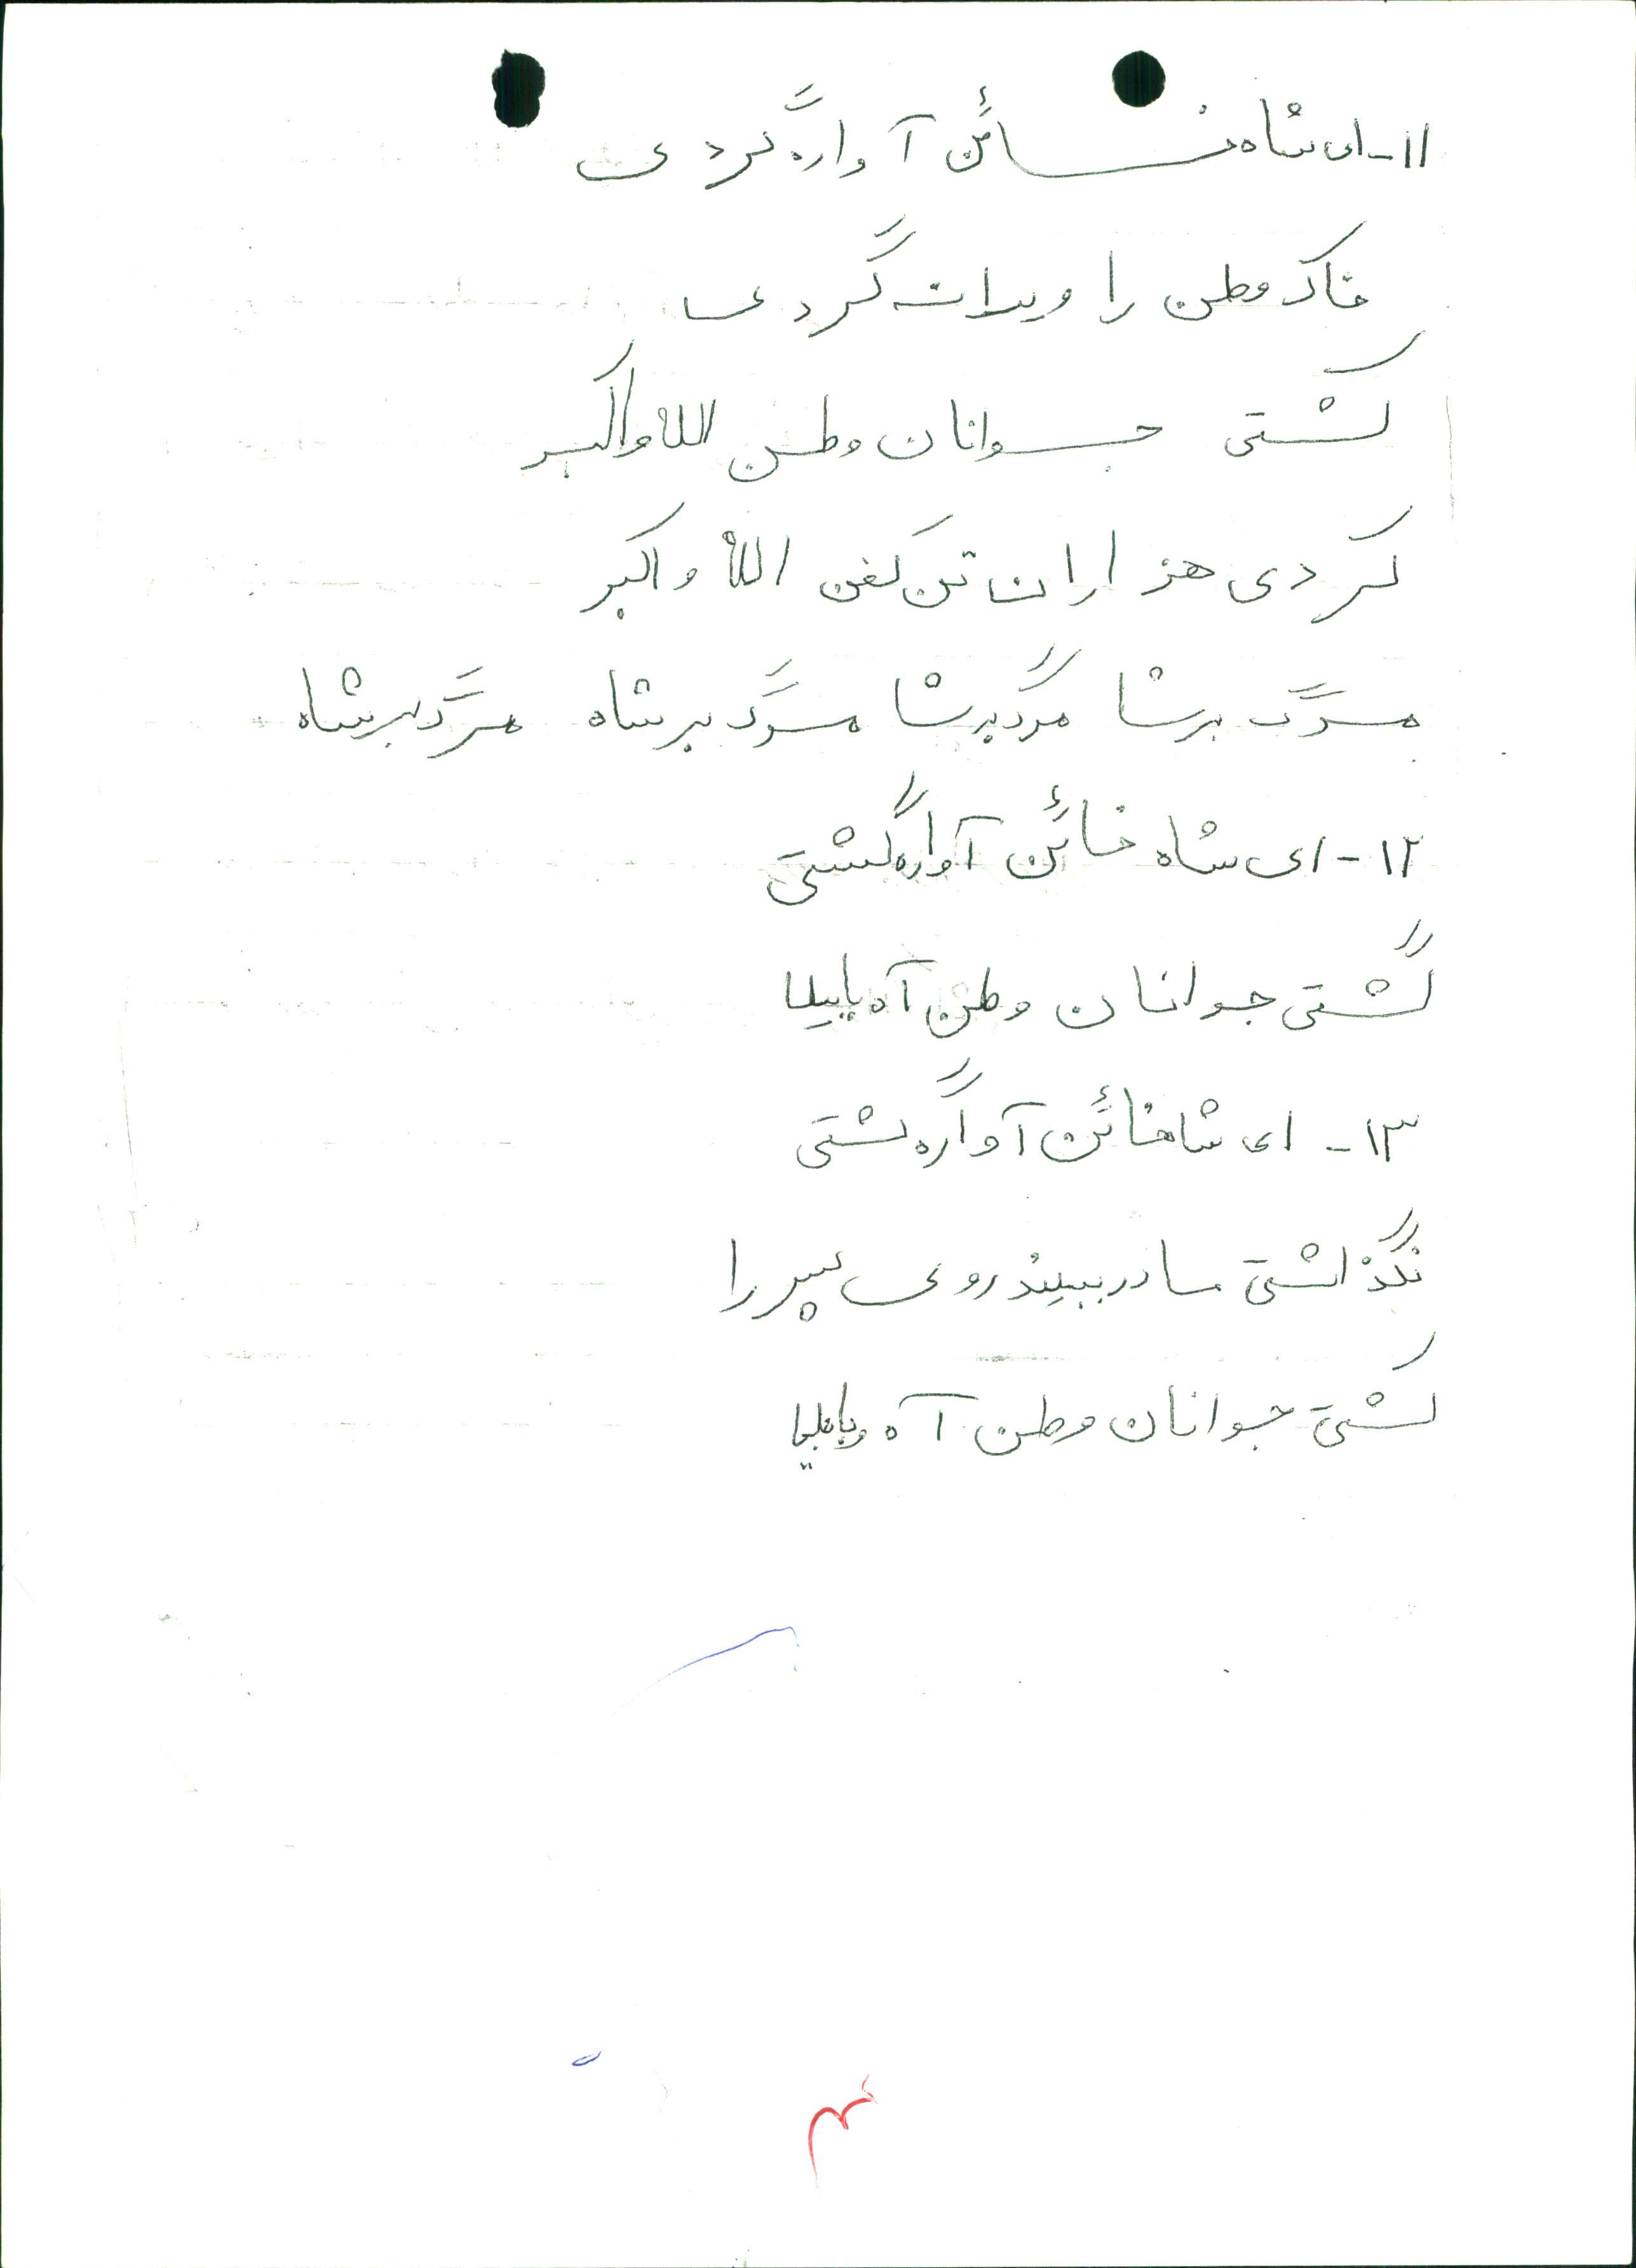 ۱۱- ای شاه خائن آواره گردی
خاک وطن را ویران گردی
کشتی جوانان وطن اللاه و اکبر
کردی هزاران تن کفن اللاه و اکبر
مرگ بر شا مرگ بر شا مرگ بر شاه مرگ بر شاه
۱۲- ای شاه خائن آواره گشتی
گشتی جوانان وطن آه
۱۳- ای شاخائن آواره گشتی
نگذاشتی مادر ببیند روی پسر را
کشتی جوانان وطن آه
۳